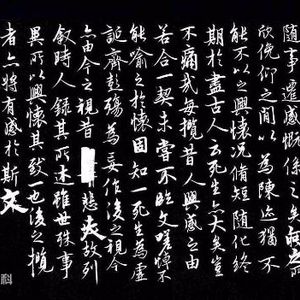 隨事遷感慨係之矣向之
欣俛仰之閒以為陳迹猶不
能不以之興懷況脩短隨化終
期於盡古人云死生亦大矣豈
不痛哉每攬昔人興感之由
若合一契未嘗不臨文嗟悼不
能喻之於懷固知一死生為虛
誕齊彭殤為妄作後之視今
亦由今之視昔悲夫故列
敘時人錄其所述雖世殊事
異所以興懷其致一也後之攬
者亦將有感於斯文
科